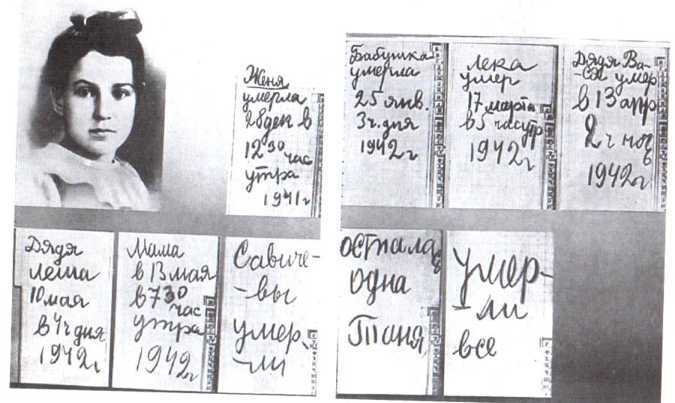 Женя
умерла
28 ден в
12 30 час
утра
1941 г
Бабушка
умерла
25 янв.
3 ч. дня
1942 г
Лека
умер
17 марта
в 5 час утр
1942 г
Дядя Ва-
-ся умер
в 13 апр
2 ч ноч
1942 г
Дядя
Леша
10 мая
в 4 ч дня
1942 г
Мама
в 13 мая
в 7 30
час
утра
1942 г
Савиче-
-вы
умер
-ли
умер-
-ли
все
осталась
одна
Таня